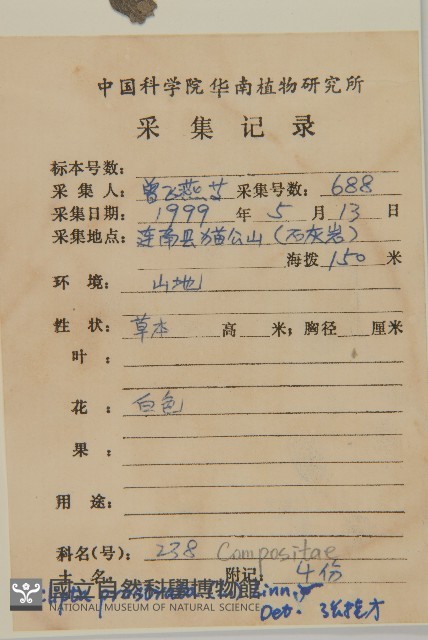 中国科学院华南植物研究所
采集记录
标本号数：
采集人：曾飞燕等 采集号数：688
采集日期：1999年5月13日
采集地点：连南县猫公山（石灰岩）
海拨150米
环境：山地
性状：草本 高 米；胸径 厘米
叶：
花：白色
果：
用途：
科名(号)：238 Compositae
土名： 附记：4份
國立自然科學博物館
NATIONAL MUSEUM OF NATURAL SCIENCE
prostrata (L.) Linn.
Det.